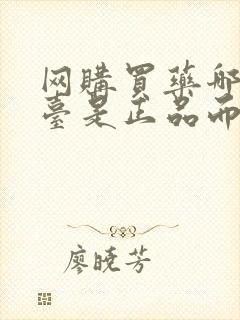 网購買藥哪
臺是正品而
廖曉芳